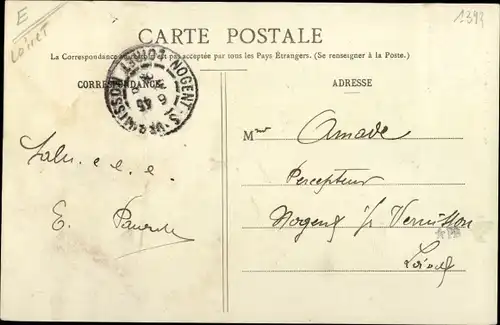 E
Loiret
1393
CARTE POSTALE
La Correspondance au recto n'est pas acceptée par tous les Pays Étrangers. (Se renseigner à la Poste.)
CORRESPONDANCE
ADRESSE
NOGENT-S-VERNISSON LOIRET
Mme Amade
Percepteur
Nogent s/ Vernisson
Loiret
E.